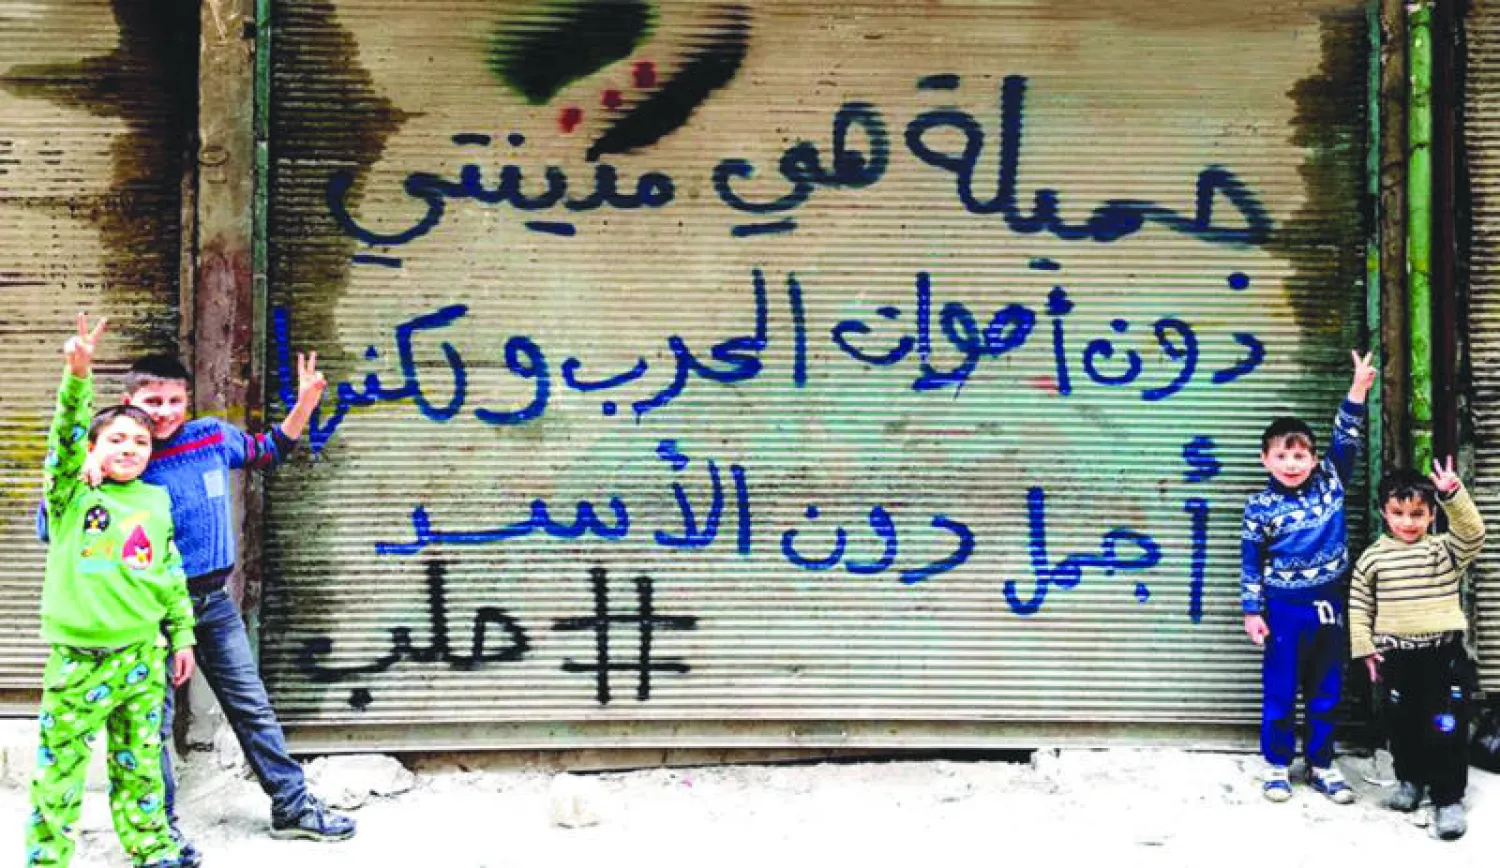 جميلة هي مدينتي
دون أصوات الحرب ولكنها
أجمل دون الأسد
#حلب